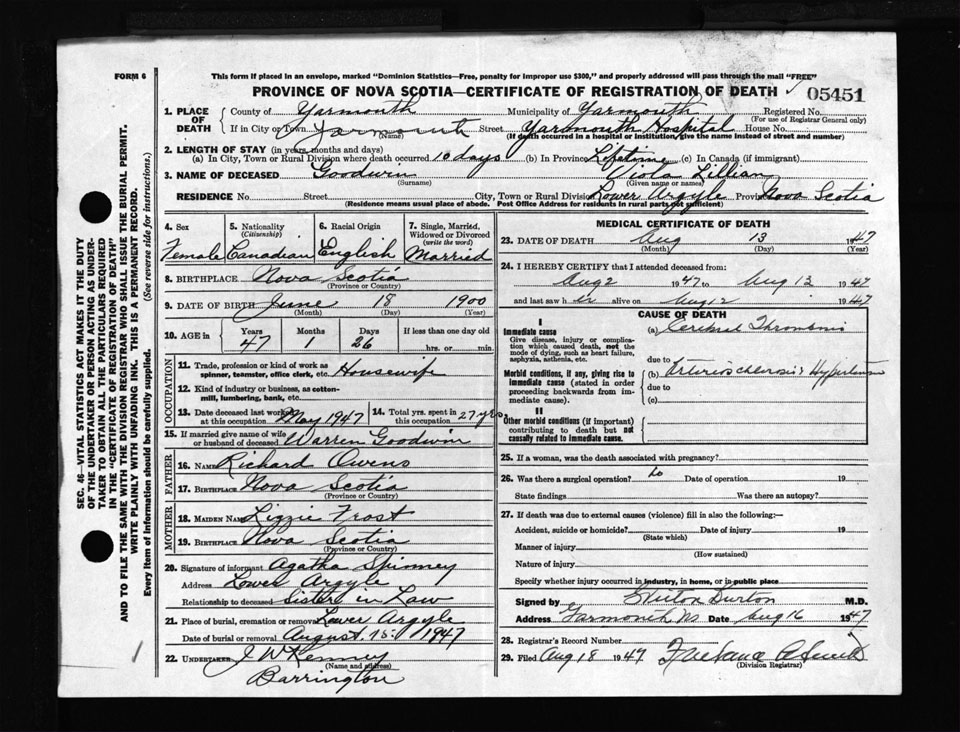 FORM 6
This form if placed in an envelope, marked "Dominion Statistics—Free, penalty for improper use $300," and properly addressed will pass through the mail "FREE"
PROVINCE OF NOVA SCOTIA—CERTIFICATE OF REGISTRATION OF DEATH 05451
SEC. 46—VITAL STATISTICS ACT MAKES IT THE DUTY
OF THE UNDERTAKER OR PERSON ACTING AS UNDER-
TAKER TO OBTAIN ALL THE PARTICULARS REQUIRED
IN THE "CERTIFICATE OF REGISTRATION OF DEATH"
AND TO FILE THE SAME WITH THE DIVISION REGISTRAR WHO SHALL ISSUE THE BURIAL PERMIT.
WRITE PLAINLY WITH UNFADING INK. THIS IS A PERMANENT RECORD.
Every item of Information should be carefully supplied. (See reverse side for instructions.)
1. PLACE OF DEATH County of Yarmouth Municipality of Yarmouth Registered No.
(For use of Registrar General only)
If in City or Town Yarmouth Street Yarmouth Hospital House No.
(Name) (If death occurred in a hospital or institution, give the name instead of street and number)
2. LENGTH OF STAY (in years, months and days)
(a) In City, Town or Rural Division where death occurred 10 days (b) In Province Lifetime (c) In Canada (if immigrant)
3. NAME OF DECEASED Goodwin Viola Lillian
(Surname) (Given name or names)
RESIDENCE No. Street City, Town or Rural Division Lower Argyle Province Nova Scotia
(Residence means usual place of abode. Post Office Address for residents in rural parts not sufficient)
4. Sex Female
5. Nationality (Citizenship) Canadian
6. Racial Origin English
7. Single, Married, Widowed or Divorced (write the word) Married
8. BIRTHPLACE Nova Scotia
(Province or Country)
9. DATE OF BIRTH June 18 1900
(Month) (Day) (Year)
10. AGE in Years 47 Months 1 Days 26 If less than one day old
hrs. or min.
OCCUPATION
11. Trade, profession or kind of work as spinner, teamster, office clerk, etc. Housewife
12. Kind of industry or business, as cotton-mill, lumbering, bank, etc.
13. Date deceased last worked at this occupation May 1947 14. Total yrs. spent in this occupation 27 yrs.
15. If married give name of wife or husband of deceased Warren Goodwin
FATHER
16. NAME Richard Owens
17. BIRTHPLACE Nova Scotia
(Province or Country)
MOTHER
18. MAIDEN NAME Lizzie Frost
19. BIRTHPLACE Nova Scotia
(Province or Country)
20. Signature of informant Agatha Spinney
Address Lower Argyle
Relationship to deceased Sister in Law
21. Place of burial, cremation or removal Lower Argyle
Date of burial or removal August 15: 1947
22. UNDERTAKER J W Kenney
(Name and address)
Barrington
MEDICAL CERTIFICATE OF DEATH
23. DATE OF DEATH Aug 13 1947
(Month) (Day) (Year)
24. I HEREBY CERTIFY that I attended deceased from:
Aug 2 1947 to Aug 13 1947
and last saw her alive on Aug 12 1947
CAUSE OF DEATH
I
Immediate cause
Give disease, injury or complication which caused death, not the mode of dying, such as heart failure, asphyxia, asthenia, etc.
(a) Cerebral Thrombosis
due to
Morbid conditions, if any, giving rise to immediate cause (stated in order proceeding backwards from immediate cause).
(b) Arteriosclerosis & Hypertension
due to
(c)
II
Other morbid conditions (if important) contributing to death but not causally related to immediate cause.
25. If a woman, was the death associated with pregnancy?
26. Was there a surgical operation? No Date of operation 19
State findings Was there an autopsy?
27. If death was due to external causes (violence) fill in also the following:—
Accident, suicide or homicide? Date of injury 19
(State which)
Manner of injury
(How sustained)
Nature of injury
Specify whether injury occurred in industry, in home, or in public place
Signed by Burton M.D.
Address Yarmouth NS Date Aug 16 1947
28. Registrar's Record Number
29. Filed Aug 18 1947
(Division Registrar)